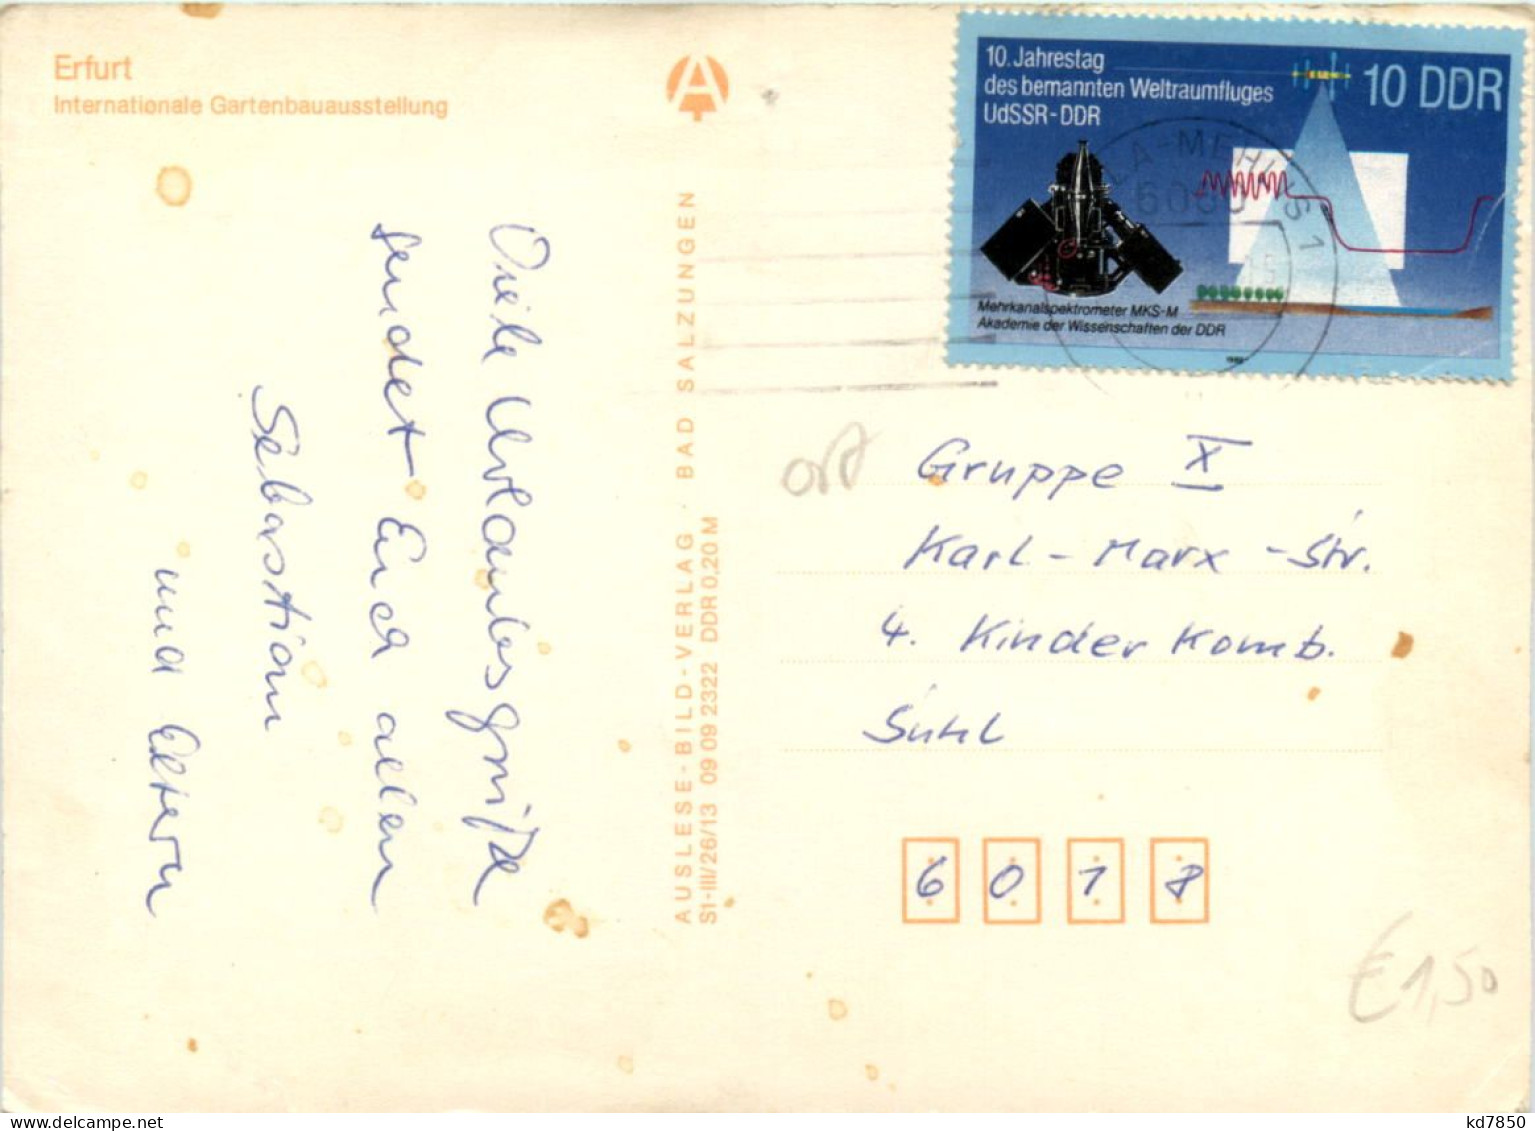 Erfurt
Internationale Gartenbauausstellung
Viele Urlaubsgrüße
sendet Euch allen
Sebastian
und Eltern
AUSLESE-BILD-VERLAG · BAD SALZUNGEN
S1-III/26/13 09 09 2322 DDR 0,20 M
10. Jahrestag
des bemannten Weltraumfluges
UdSSR-DDR
10 DDR
Mehrkanalspektrometer MKS-M
Akademie der Wissenschaften der DDR
1988
LA-MEHLIS 1
6060
ort
Gruppe X
Karl-Marx-Str.
4. Kinder Komb.
Suhl
6 0 1 8
€ 1,50
kd7850